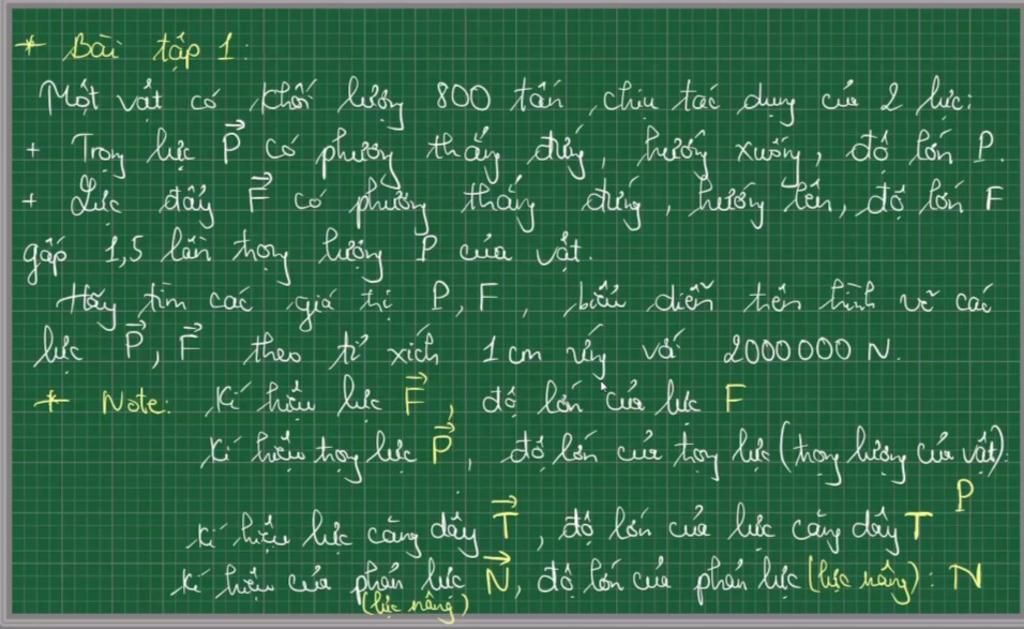 * Bài tập 1:
Một vật có khối lượng 800 tấn, chịu tác dụng của 2 lực:
+ Trọng lực P⃗ có phương thẳng đứng, hướng xuống, độ lớn P.
+ Lực đẩy F⃗ có phương thẳng đứng, hướng lên, độ lớn F
gấp 1,5 lần trọng lượng P của vật.
Hãy tìm các giá trị P, F, biểu diễn trên hình vẽ các
lực P⃗, F⃗ theo tỉ xích 1 cm ứng với 2000000 N.
* Note: Kí hiệu lực F⃗, độ lớn của lực F
Kí hiệu trọng lực P⃗, độ lớn của trọng lực (trọng lượng của vật):
P
Kí hiệu lực căng dây T⃗, độ lớn của lực căng dây T
Kí hiệu của phản lực N⃗, độ lớn của phản lực (lực nâng): N
(lực nâng)